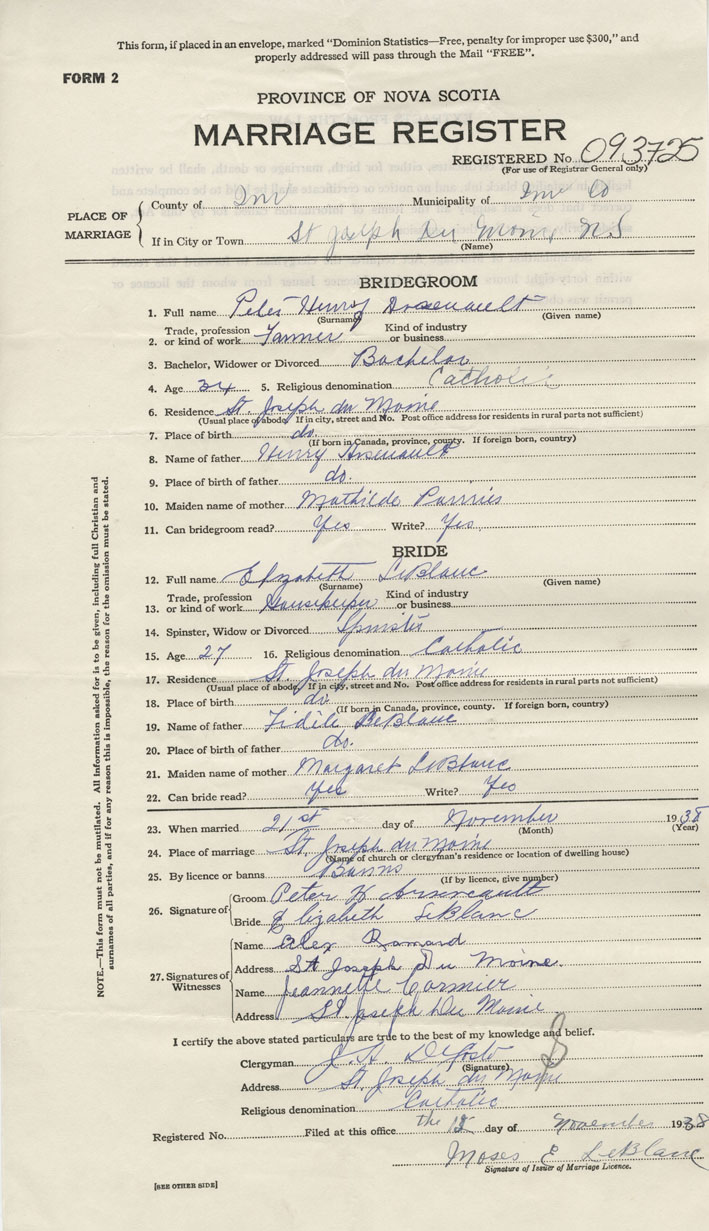 This form, if placed in an envelope, marked "Dominion Statistics—Free, penalty for improper use $300," and
properly addressed will pass through the Mail "FREE".
FORM 2
PROVINCE OF NOVA SCOTIA
MARRIAGE REGISTER
REGISTERED No 093725
(For use of Registrar General only)
PLACE OF MARRIAGE
County of Inv Municipality of Inv Co
If in City or Town St Joseph Du Moine N.S
(Name)
BRIDEGROOM
1. Full name Peter Henry Arsenault
(Surname) (Given name)
2. Trade, profession or kind of work Farmer Kind of industry or business
3. Bachelor, Widower or Divorced Bachelor
4. Age 34 5. Religious denomination Catholic
6. Residence St. Joseph du Moine
(Usual place of abode. If in city, street and No. Post office address for residents in rural parts not sufficient)
7. Place of birth do.
(If born in Canada, province, county. If foreign born, country)
8. Name of father Henry Arsenault
9. Place of birth of father do.
10. Maiden name of mother Mathilde
11. Can bridegroom read? Yes Write? Yes
BRIDE
12. Full name Elizabeth LeBlanc
(Surname) (Given name)
13. Trade, profession or kind of work Housekeeper Kind of industry or business
14. Spinster, Widow or Divorced Spinster
15. Age 27 16. Religious denomination Catholic
17. Residence St. Joseph du Moine
(Usual place of abode. If in city, street and No. Post office address for residents in rural parts not sufficient)
18. Place of birth do.
(If born in Canada, province, county. If foreign born, country)
19. Name of father Fidèle LeBlanc
20. Place of birth of father do.
21. Maiden name of mother Margaret LeBlanc
22. Can bride read? Yes Write? Yes
23. When married 21st day of November 1938
(Month) (Year)
24. Place of marriage St Joseph du Moine
(Name of church or clergyman's residence or location of dwelling house)
25. By licence or banns Banns
(If by licence, give number)
26. Signature of
Groom Peter H Arseneault
Bride Elizabeth LeBlanc
27. Signatures of Witnesses
Name Alex
Address St Joseph Du Moine.
Name Jeannette Cormier
Address St. Joseph Du Moine
I certify the above stated particulars are true to the best of my knowledge and belief.
Clergyman J. A. DeCoste
(Signature)
Address St. Joseph du Moine
Religious denomination Catholic
Registered No. Filed at this office the day of November 1938
Moses E LeBlanc
Signature of Issuer of Marriage Licence.
[SEE OTHER SIDE]
NOTE.—This form must not be mutilated. All Information asked for is to be given, including full Christian and
surnames of all parties, and if for any reason this is impossible, the reason for the omission must be stated.